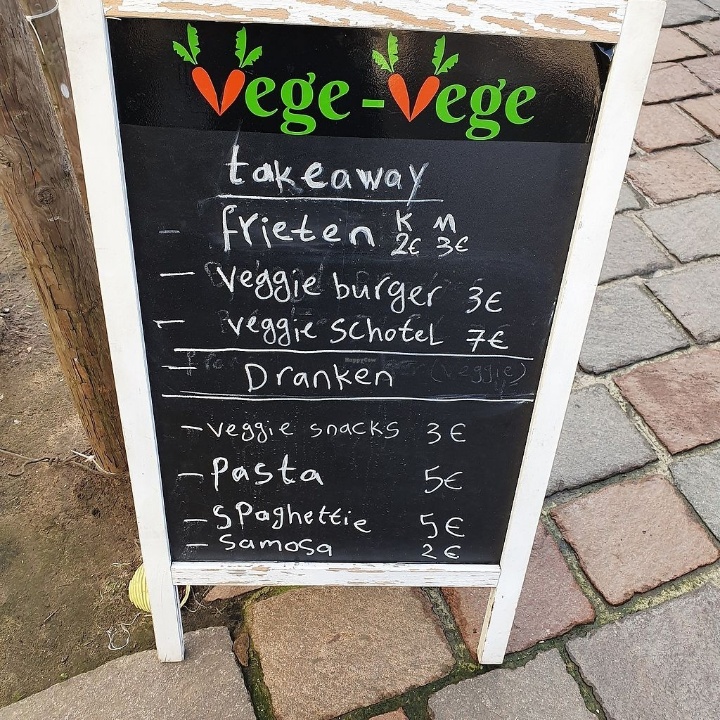 Vege-Vege
takeaway
frieten K M
2€ 3€
- veggie burger 3€
- veggie schotel 7€
Dranken (veggie)
- veggie snacks 3€
- Pasta 5€
- spaghettie 5€
- samosa 2€